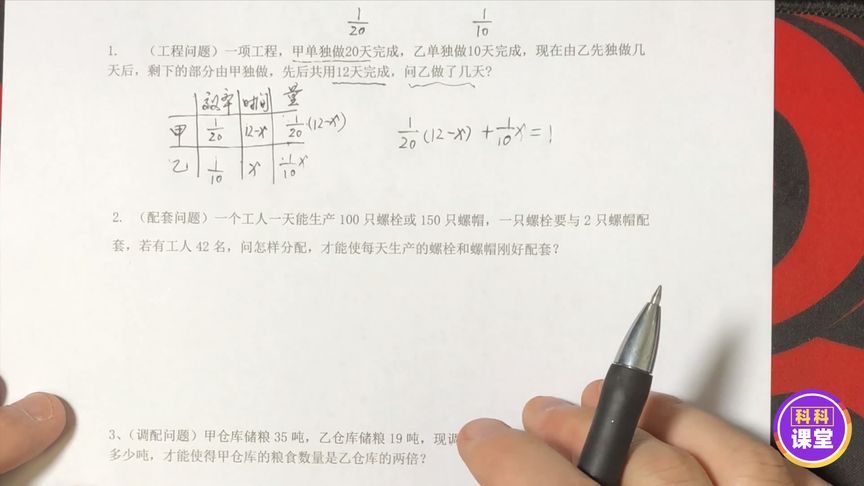 1/20 1/10
1. （工程问题）一项工程，甲单独做20天完成，乙单独做10天完成，现在由乙先独做几
天后，剩下的部分由甲独做，先后共用12天完成，问乙做了几天?
效率 时间 量
甲 1/20 12-x 1/20(12-x)
乙 1/10 x 1/10x
1/20(12-x)+1/10x=1
2. （配套问题）一个工人一天能生产 100 只螺栓或 150 只螺帽，一只螺栓要与 2 只螺帽配
套，若有工人 42 名，问怎样分配，才能使每天生产的螺栓和螺帽刚好配套？
3、（调配问题）甲仓库储粮 35 吨，乙仓库储粮 19 吨，现调
多少吨，才能使得甲仓库的粮食数量是乙仓库的两倍？
科科
课堂